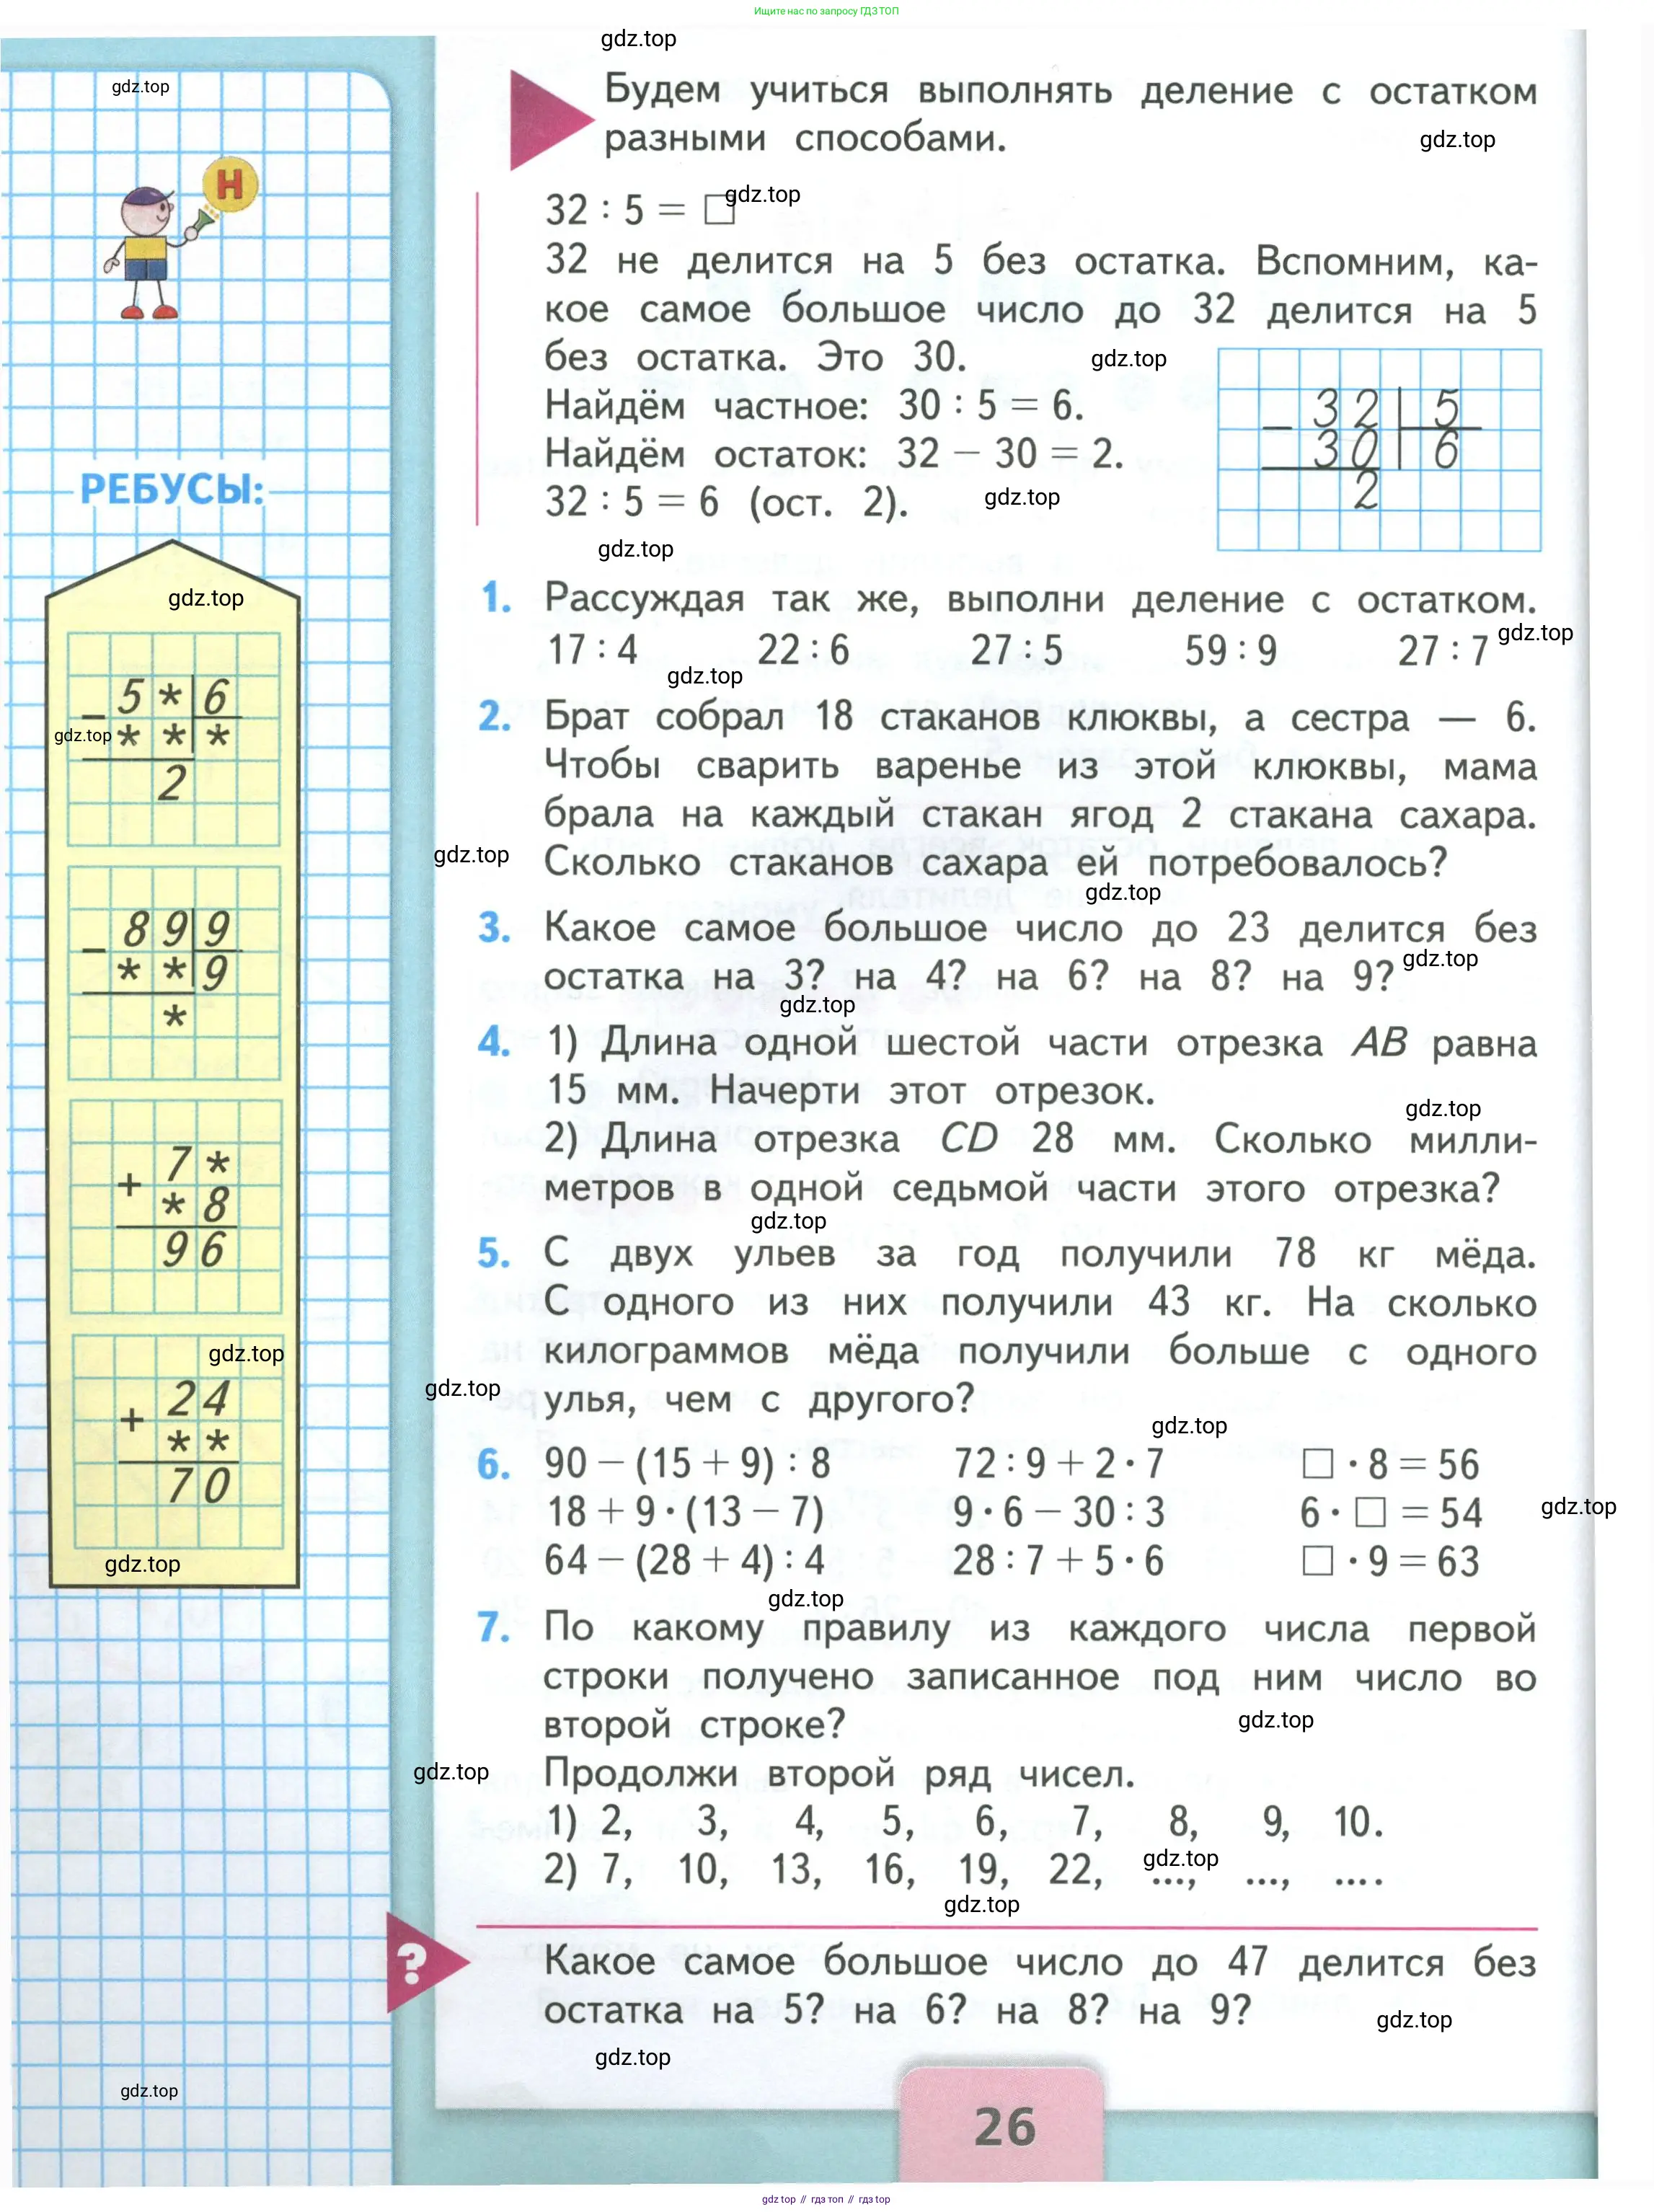 Ищите нас по запросу ГДЗ ТОП
gdz.top
gdz.top
Будем учиться выполнять деление с остатком
разными способами.
gdz.top
Н
32 : 5 = □
gdz.top
32 не делится на 5 без остатка. Вспомним, ка-
кое самое большое число до 32 делится на 5
без остатка. Это 30.
gdz.top
Найдём частное: 30 : 5 = 6.
Найдём остаток: 32 − 30 = 2.
32 : 5 = 6 (ост. 2).
gdz.top
− 32 | 5
30 | 6
2
gdz.top
РЕБУСЫ:
gdz.top
− 5 * | 6
* * | *
gdz.top
2
− 8 9 | 9
* * | 9
*
+ 7 *
* 8
9 6
gdz.top
+ 2 4
* *
7 0
gdz.top
1. Рассуждая так же, выполни деление с остатком.
17 : 4 22 : 6 27 : 5 59 : 9 27 : 7
gdz.top
gdz.top
2. Брат собрал 18 стаканов клюквы, а сестра — 6.
Чтобы сварить варенье из этой клюквы, мама
брала на каждый стакан ягод 2 стакана сахара.
Сколько стаканов сахара ей потребовалось?
gdz.top
gdz.top
3. Какое самое большое число до 23 делится без
остатка на 3? на 4? на 6? на 8? на 9?
gdz.top
gdz.top
4. 1) Длина одной шестой части отрезка AB равна
15 мм. Начерти этот отрезок.
gdz.top
2) Длина отрезка CD 28 мм. Сколько милли-
метров в одной седьмой части этого отрезка?
gdz.top
5. С двух ульев за год получили 78 кг мёда.
С одного из них получили 43 кг. На сколько
килограммов мёда получили больше с одного
улья, чем с другого?
gdz.top
gdz.top
6. 90 − (15 + 9) : 8 72 : 9 + 2 · 7 □ · 8 = 56
18 + 9 · (13 − 7) 9 · 6 − 30 : 3 6 · □ = 54
gdz.top
64 − (28 + 4) : 4 28 : 7 + 5 · 6 □ · 9 = 63
gdz.top
7. По какому правилу из каждого числа первой
строки получено записанное под ним число во
второй строке?
gdz.top
Продолжи второй ряд чисел.
gdz.top
1) 2, 3, 4, 5, 6, 7, 8, 9, 10.
2) 7, 10, 13, 16, 19, 22, ..., ..., ... .
gdz.top
gdz.top
? Какое самое большое число до 47 делится без
остатка на 5? на 6? на 8? на 9?
gdz.top
gdz.top
gdz.top
26
gdz.top // гдз топ // гдз top